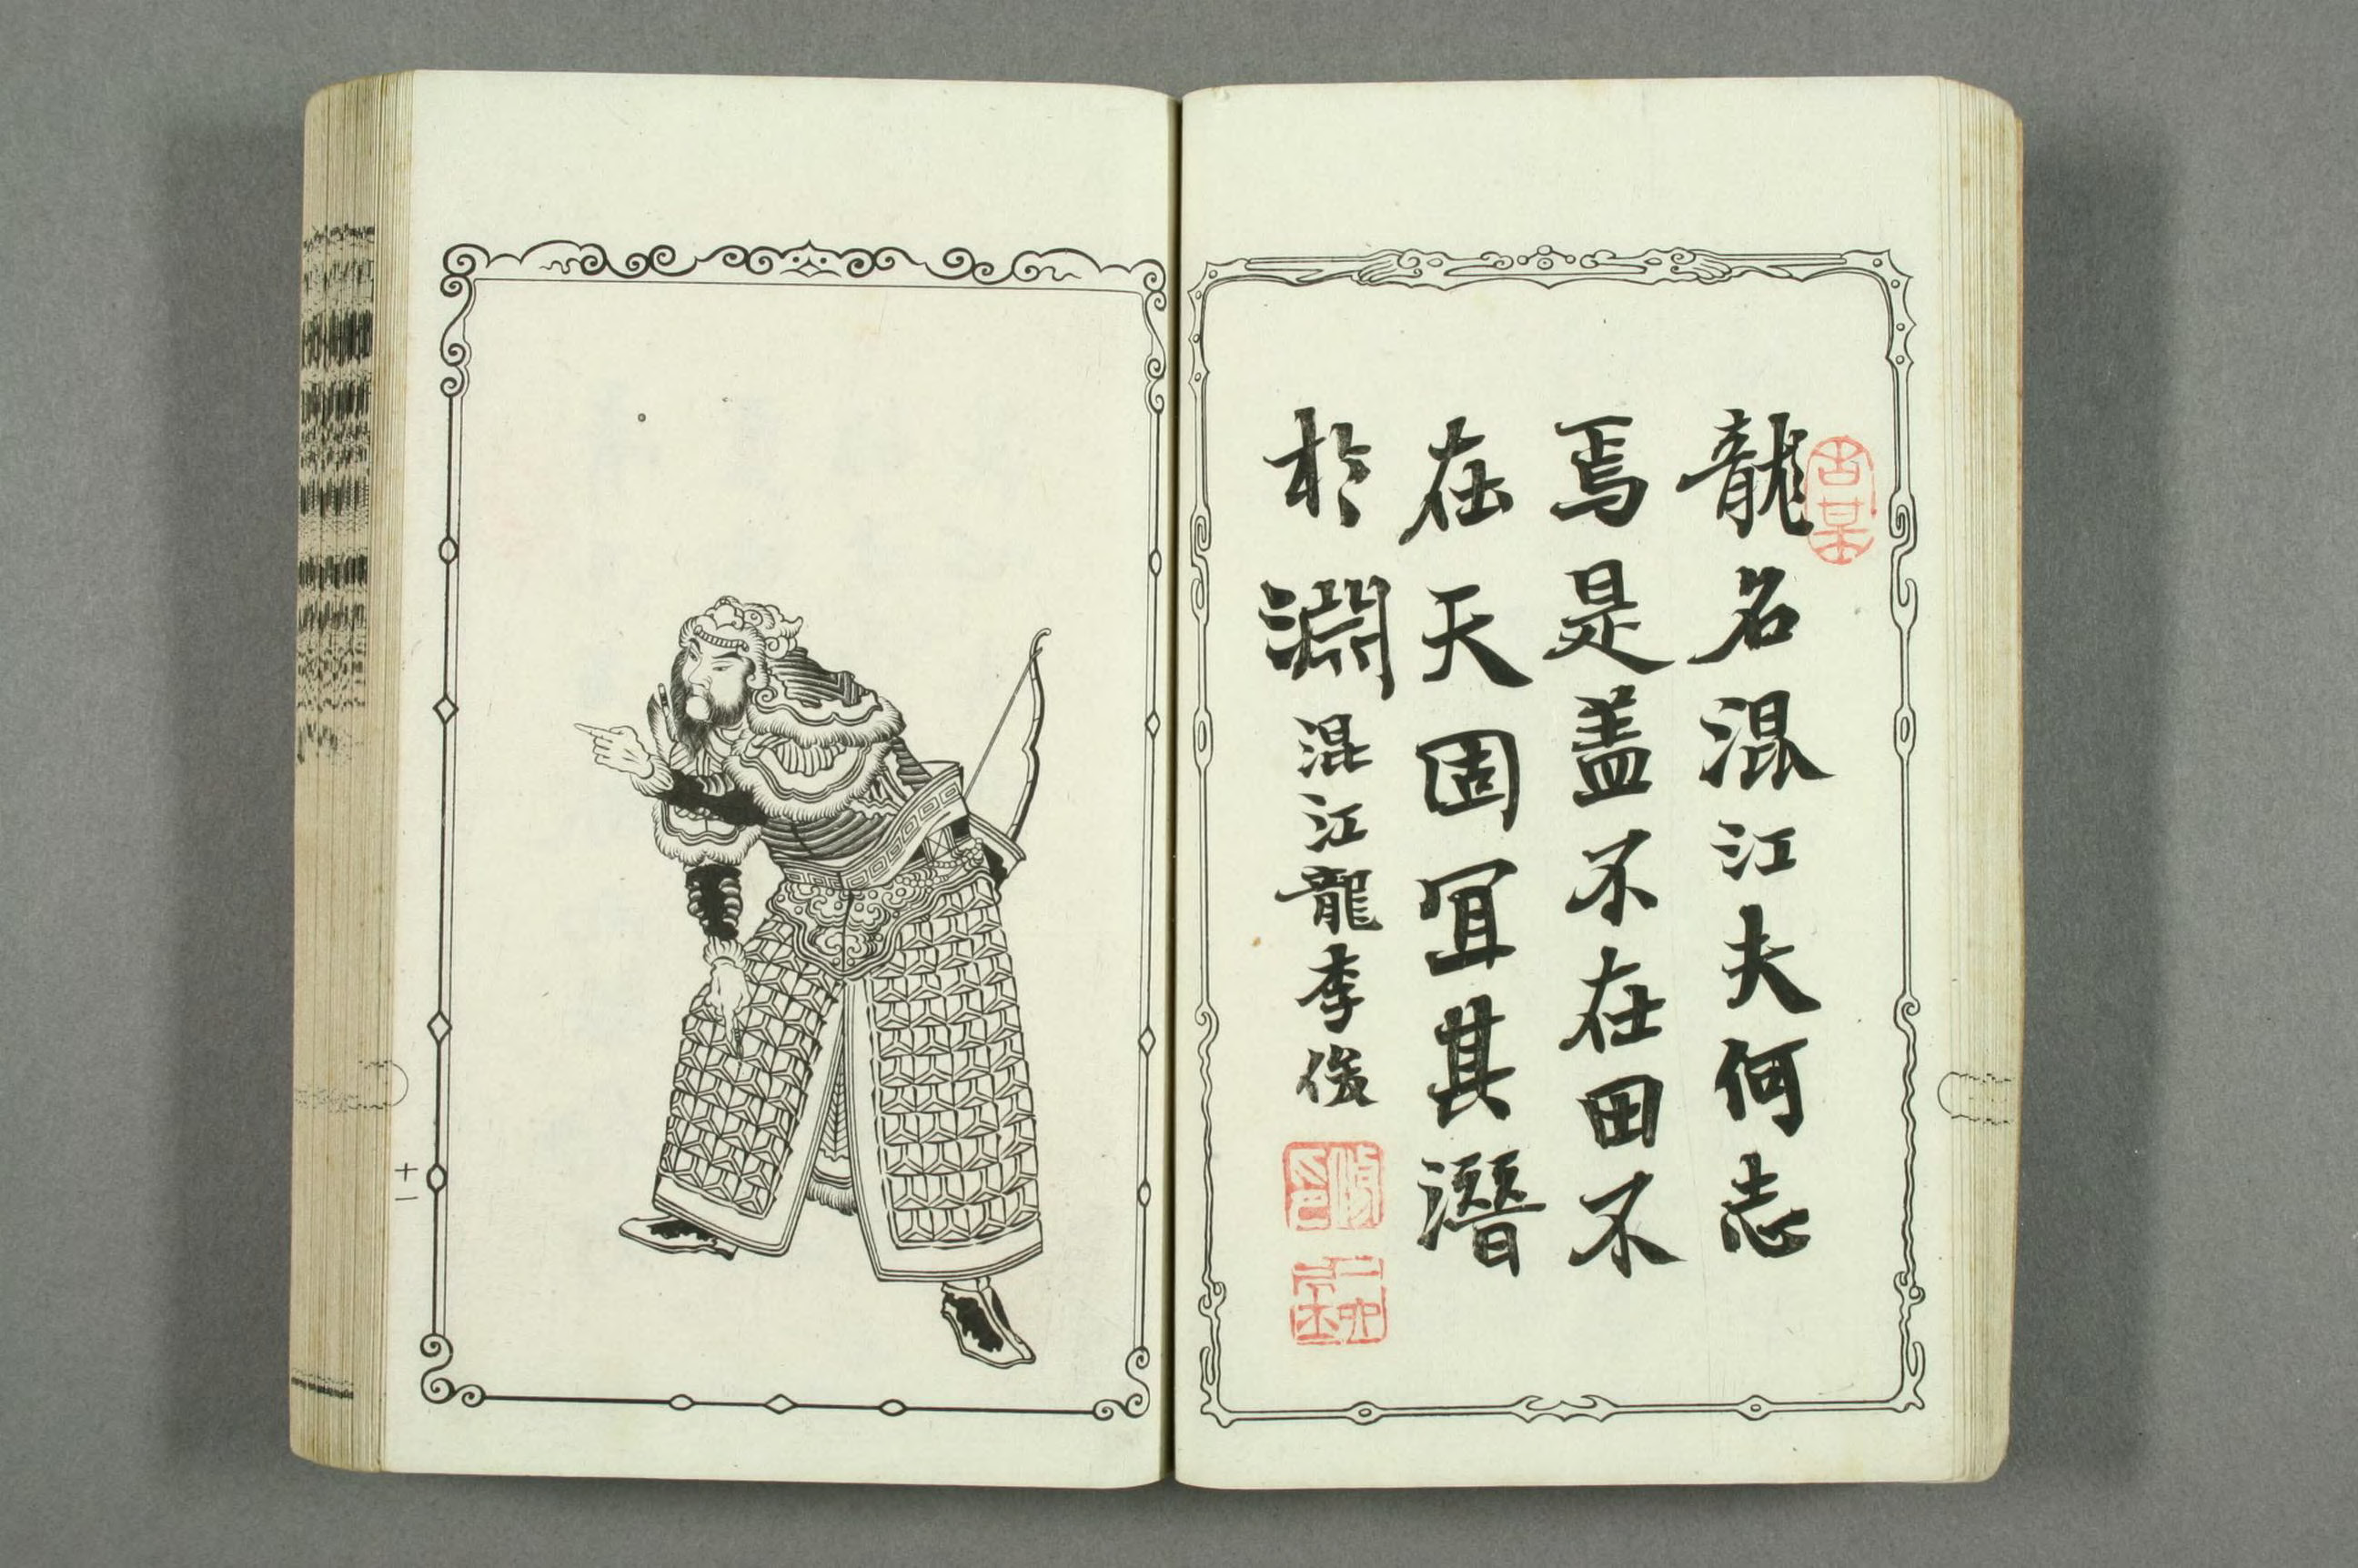 龍名混江夫何志
焉是盖不在田不
在天固宜其潛
於淵混江龍李俊
十一